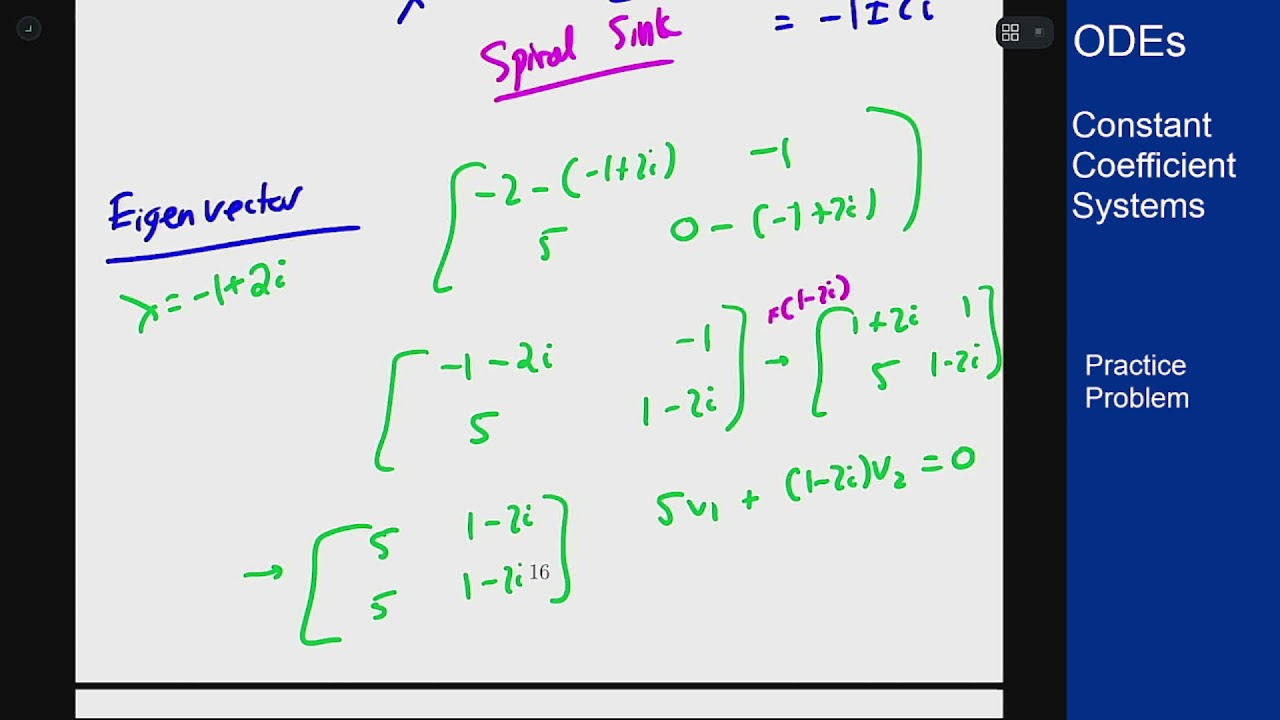 λ
= -1±2i
Spiral Sink
Eigenvector
λ = -1+2i
[ -2-(-1+2i) -1
5 0-(-1+2i) )
[ -1-2i -1
5 1-2i ]
*(1-2i)
→ [ 1+2i 1
5 1-2i ]
→ [ 5 1-2i
5 1-2i ]
16
5v₁ + (1-2i)v₂ = 0
ODEs
Constant
Coefficient
Systems
Practice
Problem